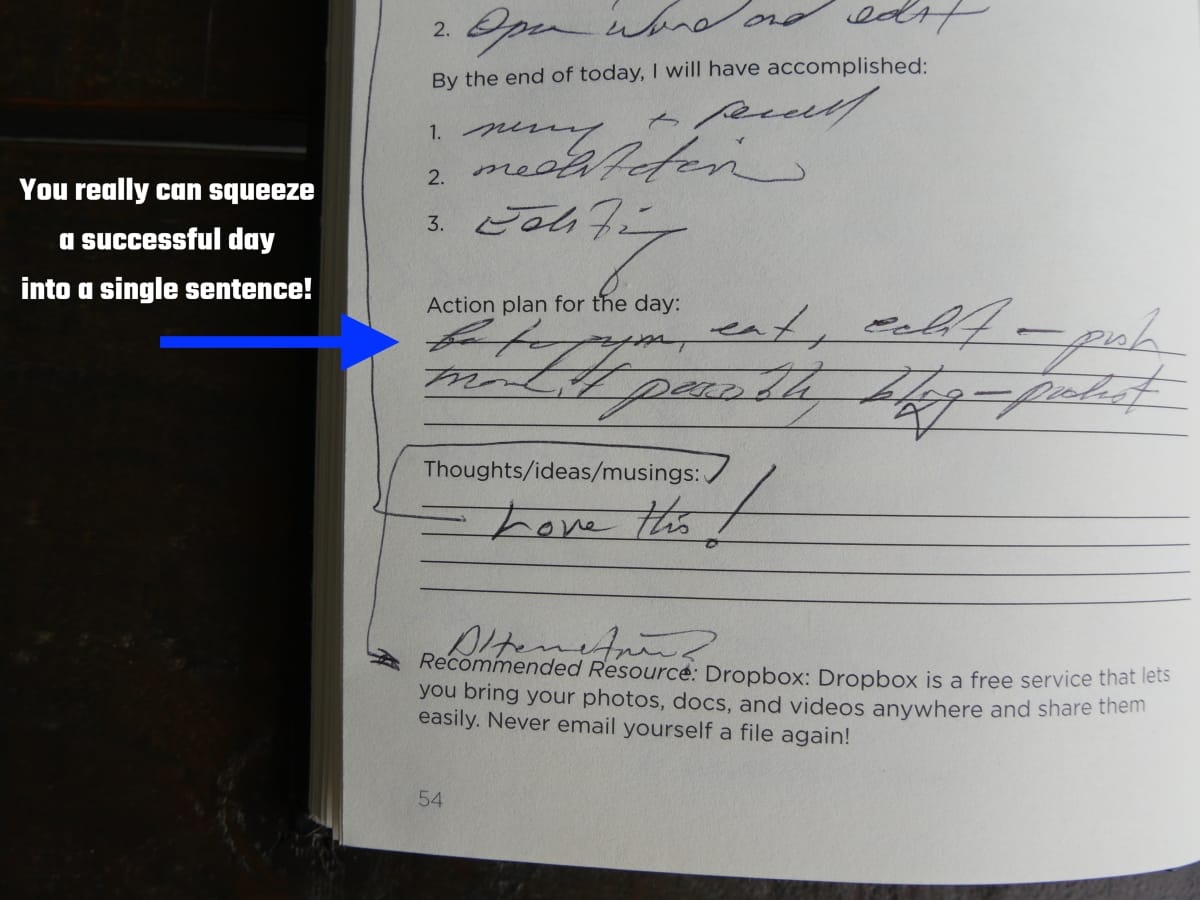 2. Open Word and edit
By the end of today, I will have accomplished:
1. + recall
2. meditation
3. Editing
You really can squeeze
a successful day
into a single sentence!
Action plan for the day:
to gym, eat, edit – push
if possible, blog – podcast
Thoughts/ideas/musings:
Love this!
Alternatives?
Recommended Resource: Dropbox: Dropbox is a free service that lets
you bring your photos, docs, and videos anywhere and share them
easily. Never email yourself a file again!
54